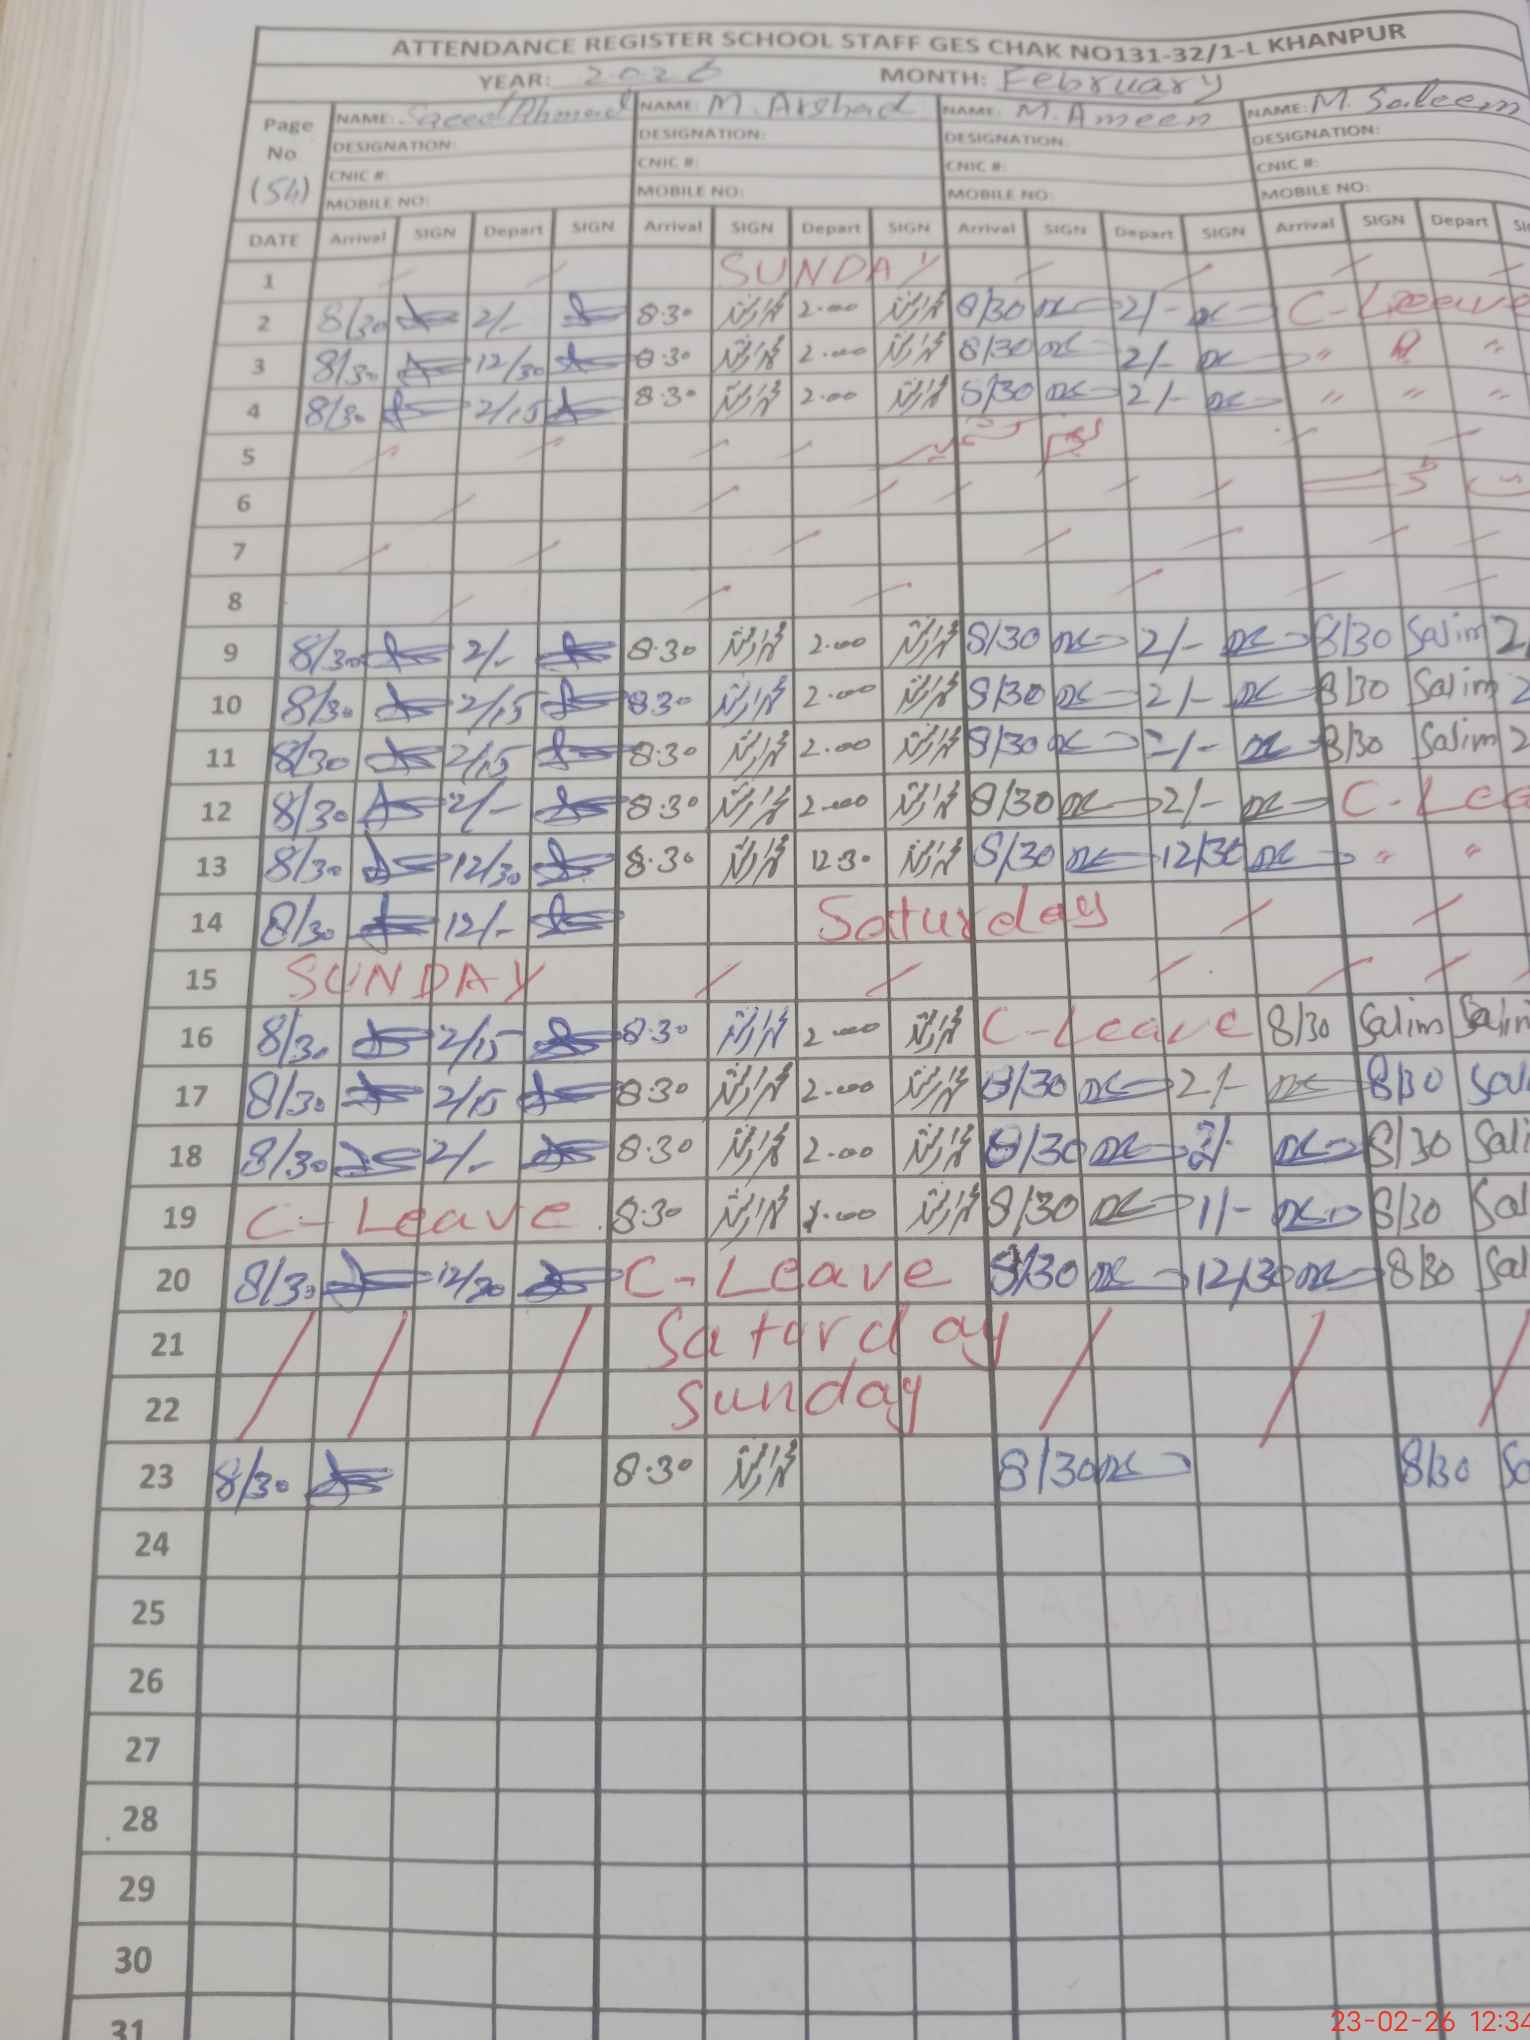 ATTENDANCE REGISTER SCHOOL STAFF GES CHAK NO131-32/1-L KHANPUR
YEAR: 2026 MONTH: February
Page No (54)
NAME: Saeed Ahmad NAME: M. Arshad NAME: M. Ameen NAME: M. Saleem
DESIGNATION: DESIGNATION: DESIGNATION: DESIGNATION:
CNIC #: CNIC #: CNIC #: CNIC #:
MOBILE NO: MOBILE NO: MOBILE NO: MOBILE NO:
DATE Arrival SIGN Depart SIGN Arrival SIGN Depart SIGN Arrival SIGN Depart SIGN Arrival SIGN Depart
1 SUNDAY
2 8/30 2/- 8.30 2.00 8/30 2/- C-Leave
3 8/30 12/30 8.30 2.00 8/30 2/- " "
4 8/30 2/15 8.30 2.00 8/30 2/- " " "
5
6
7
8
9 8/30 2/- 8.30 2.00 8/30 2/- 8/30 Salim 2
10 8/30 2/15 8.30 2.00 8/30 2/- 8/30 Salim 2
11 8/30 2/15 8.30 2.00 8/30 2/- 8/30 Salim 2
12 8/30 2/- 8.30 2.00 8/30 2/- C-Lea
13 8/30 12/30 8.30 12.30 8/30 12/30 " "
14 8/30 12/- Saturday
15 SUNDAY
16 8/30 2/15 8.30 2.00 C-Leave 8/30 Salim Salim
17 8/30 2/15 8.30 2.00 8/30 2/- 8/30 Sali
18 8/30 2/- 8.30 2.00 8/30 2/- 8/30 Sali
19 C-Leave 8.30 8/30 1/- 8/30 Sal
20 8/30 12/30 C-Leave 8/30 12/30 8/30 Sal
21 Saturday
22 Sunday
23 8/30 8.30 8/30 8/30 Sa
24
25
26
27
28
29
30
31
23-02-26 12:34